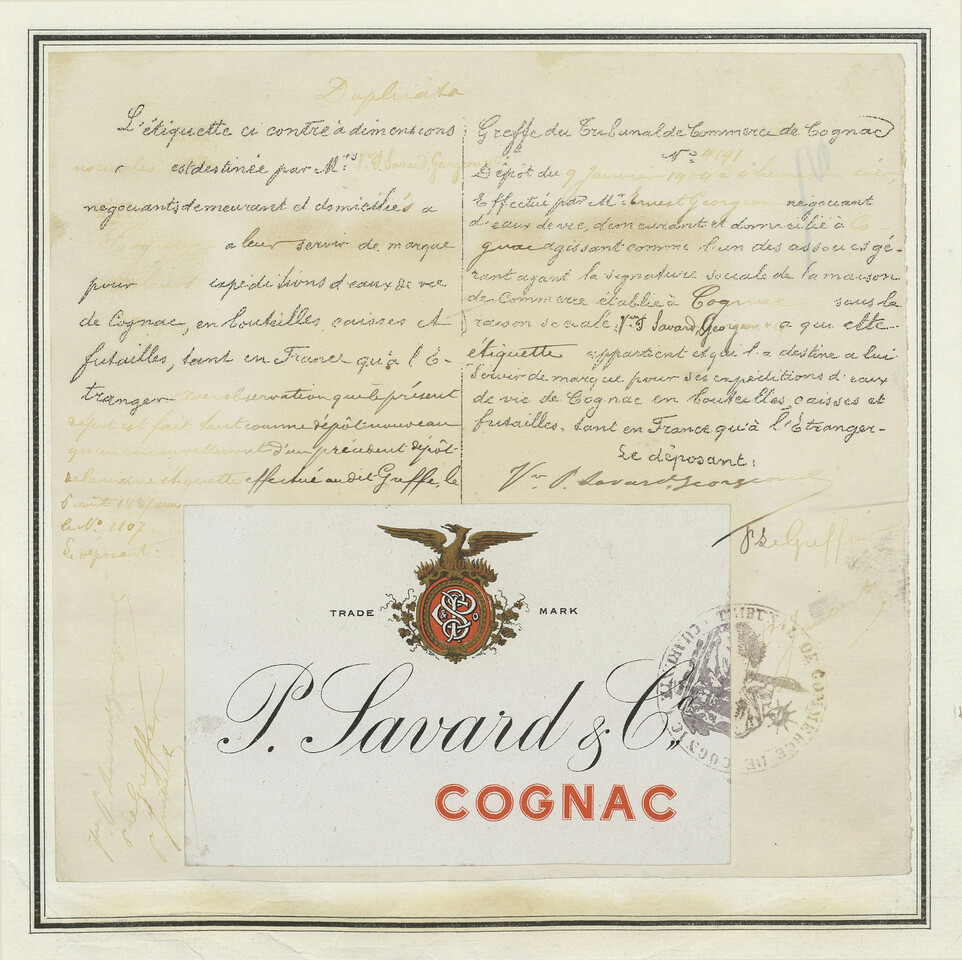 Duplicata
L'étiquette ci contre à dimensions
normales est destinée par M.rs Vve P. Savard, Georgeon & Cie
négociants demeurant et domiciliés a
a leur servir de marque
pour leurs expéditions d'eaux de vie
de Cognac, en bouteilles, caisses et
futailles, tant en France qu'à l'É-
tranger avec observation que le présent
dépôt est fait tant comme dépôt nouveau
qu'en renouvellement d'un précédent dépôt
de la même étiquette effectué au dit Greffe, le
6 août 1887 sous
le No 1107.
Le déposant:
Greffe du Tribunal de Commerce de Cognac
No 4191
Dépôt du 9 Janvier 1904 à 4 heures du soir,
Effectué par Mr. Ernest Georgeon négociant
d'eaux de vie, demeurant et domicilié à Co
gnac agissant comme l'un des associés gé-
rant ayant la signature sociale de la maison
de Commerce établie à Cognac sous la
raison sociale, Vve P. Savard, Georgeon & Cie a qui cette
étiquette appartient et qui l'a destine a lui
servir de marque pour ses expéditions d'eaux
de vie de Cognac en bouteilles, caisses et
futailles, tant en France qu'à l'Étranger-
Le déposant:
Vve P. Savard, Georgeon
Le Greffier
TRADE MARK
P. Savard & Co.
COGNAC
TRIBUNAL DE COMMERCE DE COGNAC
Le Greffier